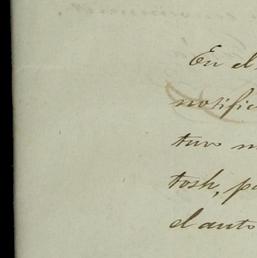 En el
notific
turo m
tosh, pa
el auto